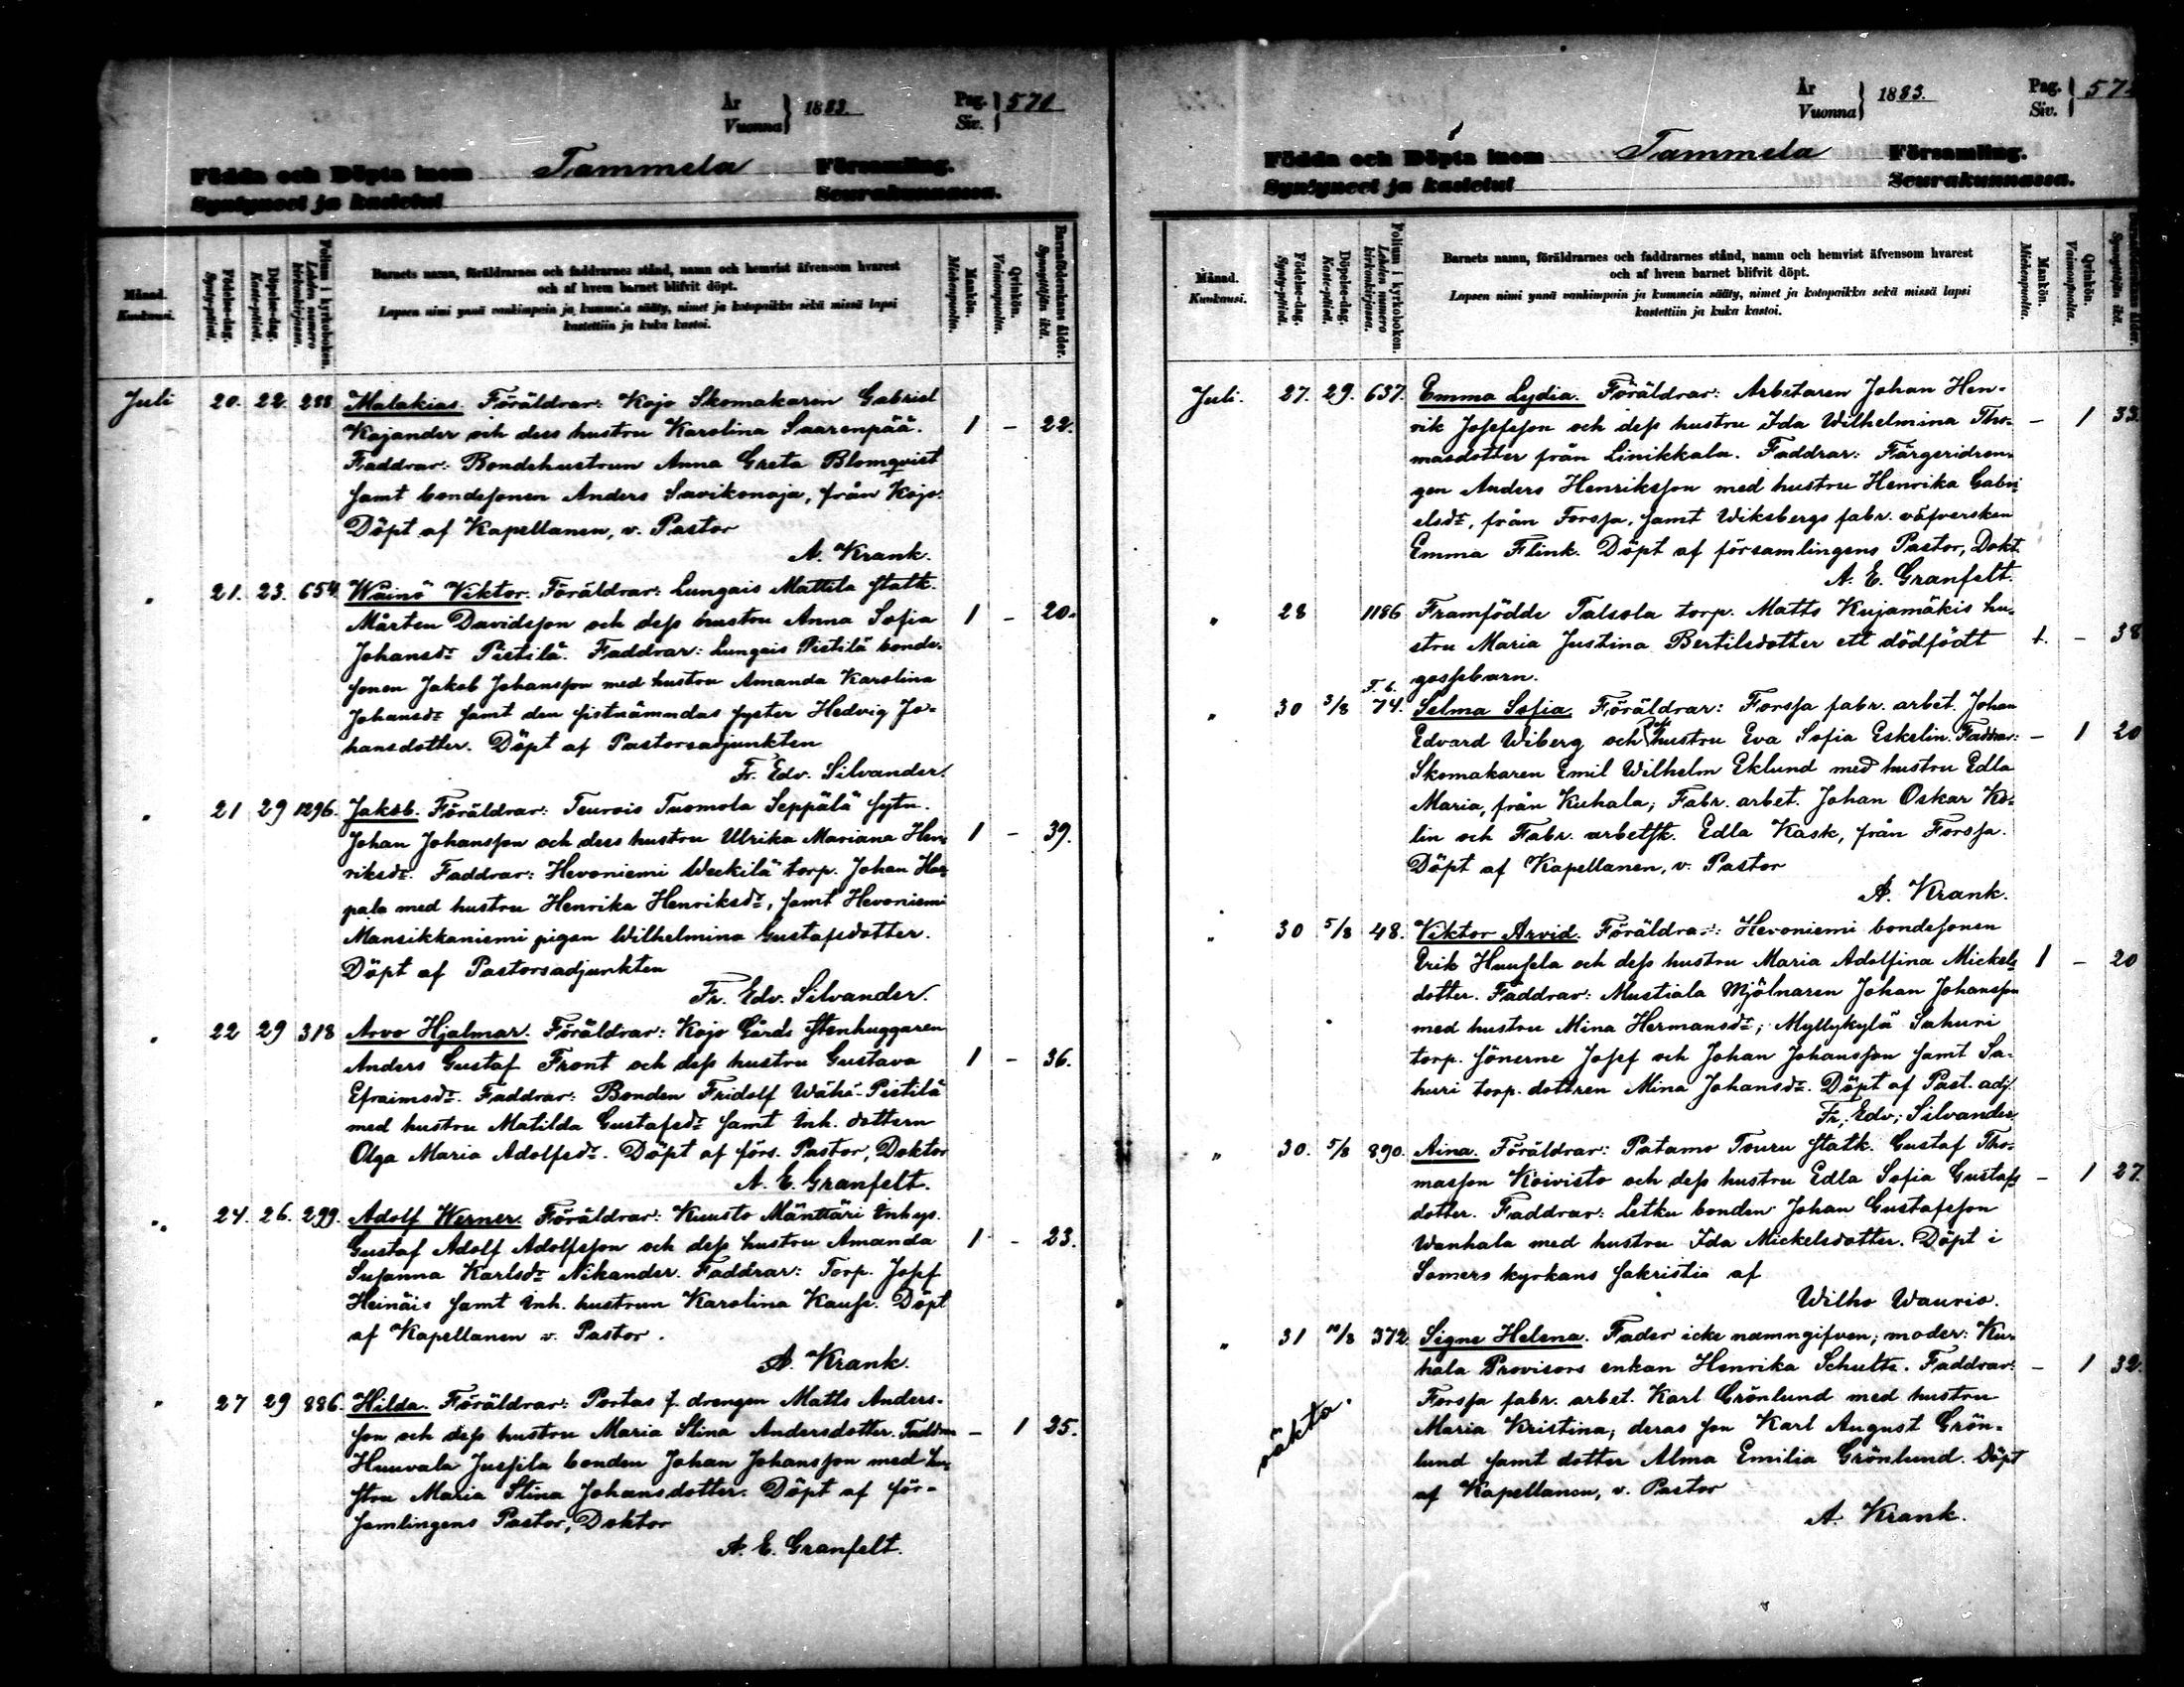 År Vuonna } 1883. Pag. Siv. } 571
Födda och Döpta inom Tammela Församling.
Syntyneet ja kastetut Seurakunnassa.
Månad. Kuukausi.
Födelse-dag. Synty-päivä.
Döpelse-dag. Kaste-päivä.
Folium i kyrkoboken. Lehden numero kirkonkirjassa.
Barnets namn, föräldrarnes och faddrarnes stånd, namn och hemvist äfvensom hvarest
och af hvem barnet blifvit döpt.
Lapsen nimi ynnä vanhimpain ja kummein sääty, nimet ja kotopaikka sekä missä lapsi
kastettiin ja kuka kastoi.
Mankön. Miehenpuolta.
Qvinkön. Vaimonpuolta.
Barnaföderskans ålder. Synnyttäjän ikä.
Juli 20. 22. 288 Malakias. Föräldrar: Kojo Skomakaren Gabriel
Kajander och dess hustru Karolina Saarenpää. 1 – 22.
Faddrar: Bondehustrun Anna Greta Blomqvist
samt bondesonen Anders Savikonoja, från Kojo.
Döpt af Kapellanen, v. Pastor
A. Krank.
" 21. 23. 654 Wäinö Viktor. Föräldrar: Lungais Mattila statk.
Mårten Davidsson och dess hustru Anna Sofia 1 – 20.
Johansdr Pistilä. Faddrar: Lungais Pistilä bonde-
sonen Jakob Johansson med hustru Amanda Karolina
Johansdr samt den sistnämndas syster Hedvig Jo-
hansdotter. Döpt af Pastorsadjunkten
Fr. Edv. Silvander.
" 21 29 1296. Jakob. Föräldrar: Teurois Tuomola Seppälä sytn.
Johan Johansson och dess hustru Ulrika Mariana Hen- 1 – 39.
riksdr. Faddrar: Hevoniemi Weckilä torp. Johan Haa-
pala med hustru Henrika Henriksdr, samt Hevoniemi
Mansikkaniemi pigan Wilhelmina Gustafsdotter.
Döpt af Pastorsadjunkten
Fr. Edv. Silvander.
" 22 29 318 Arvo Hjalmar. Föräldrar: Kojo Gårds stenhuggaren
Anders Gustaf Front och dess hustru Gustava 1 – 36.
Efraimsdr. Faddrar: Bonden Fridolf Wähä-Pistilä
med hustru Matilda Gustafsdr samt Inh. dottern
Olga Maria Adolfsdr. Döpt af förs. Pastor, Doktor
A. E. Granfelt.
" 24. 26. 299. Adolf Werner. Föräldrar: Kuusto Mänttäri Inhys.
Gustaf Adolf Adolfsson och dess hustru Amanda 1 – 23.
Susanna Karlsdr Nikander. Faddrar: Torp. Josef
Heinäis samt Inh. hustrun Karolina Kauss. Döpt
af Kapellanen v. Pastor.
A. Krank.
" 27 29 886. Hilda. Föräldrar: Portas f. drengen Matts Anders-
son och dess hustru Maria Stina Andersdotter. Faddrar – 1 25.
Huuvala Jussila bonden Johan Johansson med hu-
stru Maria Stina Johansdotter. Döpt af för-
samlingens Pastor, Doktor
A. E. Granfelt.
År Vuonna } 1883. Pag. Siv. } 57
Födda och Döpta inom Tammela Församling.
Syntyneet ja kastetut Seurakunnassa.
Månad. Kuukausi.
Födelse-dag. Synty-päivä.
Döpelse-dag. Kaste-päivä.
Folium i kyrkoboken. Lehden numero kirkonkirjassa.
Barnets namn, föräldrarnes och faddrarnes stånd, namn och hemvist äfvensom hvarest
och af hvem barnet blifvit döpt.
Lapsen nimi ynnä vanhimpain ja kummein sääty, nimet ja kotopaikka sekä missä lapsi
kastettiin ja kuka kastoi.
Mankön. Miehenpuolta.
Qvinkön. Vaimonpuolta.
Barnaföderskans ålder. Synnyttäjän ikä.
Juli. 27. 29. 637. Emma Lydia. Föräldrar: Arbetaren Johan Hen-
rik Josefsson och dess hustru Ida Wilhelmina Tho- – 1 33.
masdotter från Linikkala. Faddrar: Färgeridren-
gen Anders Henriksson med hustru Henrika Gabri-
elsdr, från Forssa, samt Wiksbergs fabr. väfverskan
Emma Flink. Döpt af församlingens Pastor, Dokt.
A. E. Granfelt.
" 28 1186 Framfödde Talsola torp. Matts Kujamäkis hu-
stru Maria Justina Bertilsdotter ett dödfödt 1. – 38
gossebarn.
" 30 3/8 F. b. 74. Selma Sofia. Föräldrar: Forssa fabr. arbet. Johan
Edvard Wiberg och dess hustru Eva Sofia Eskelin. Faddrar: – 1 20
Skomakaren Emil Wilhelm Eklund med hustru Edla
Maria, från Kuhala; Fabr. arbet. Johan Oskar Ko-
lin och Fabr. arbetsk. Edla Kask, från Forssa.
Döpt af Kapellanen, v. Pastor
A. Krank.
" 30 5/8 48. Viktor Arvid. Föräldrar: Hevoniemi bondesonen
Erik Huusela och dess hustru Maria Adolfina Mickels- 1 – 20
dotter. Faddrar: Mustiala Mjölnaren Johan Johansson
med hustru Mina Hermansdr; Myllykylä Sahuri
torp. sönerne Josef och Johan Johansson samt Sa-
huri torp. dottren Mina Johansdr. Döpt af Past. adj.
Fr. Edv. Silvander
" 30. 5/8 890. Aina. Föräldrar: Patamo Touru statk. Gustaf Tho-
masson Koivisto och dess hustru Edla Sofia Gustafs- – 1 27.
dotter. Faddrar: Letku bonden Johan Gustafsson
Wanhala med hustru Ida Mickelsdotter. Döpt i
Somero kyrkans sakristia af
Wilho Wauris.
" 31 10/8 372. Signe Helena. Fader icke namngifven; moder: Ku-
hala Provisors enkan Henrika Schultz. Faddrar: – 1 32.
Forssa fabr. arbet. Karl Grönlund med hustru
oäkta. Maria Kristina; deras son Karl August Grön-
lund samt dotter Alma Emilia Grönlund. Döpt
af Kapellanen, v. Pastor
A. Krank.